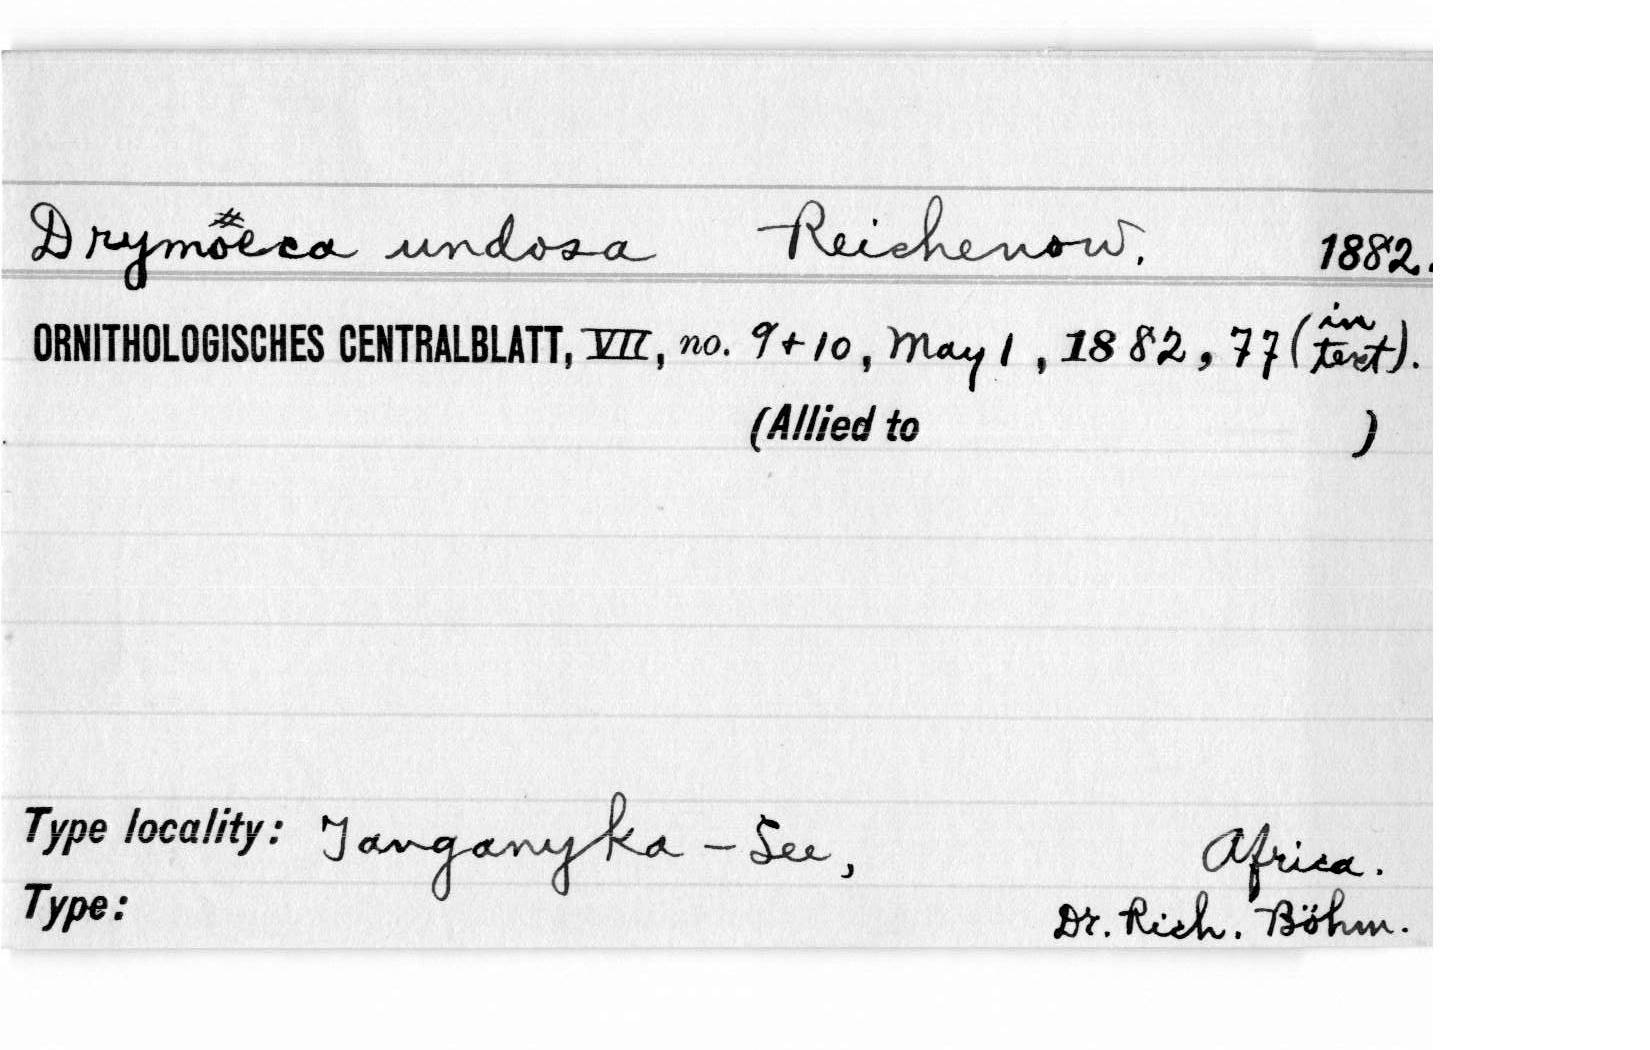 Drymoeca undosa Reichenow. 1882.
ORNITHOLOGISCHES CENTRALBLATT, VII, no. 9+10, May 1, 1882, 77 (in text).
(Allied to )
Type locality: Tanganyka-See, Africa.
Type: Dr. Rich. Böhm.